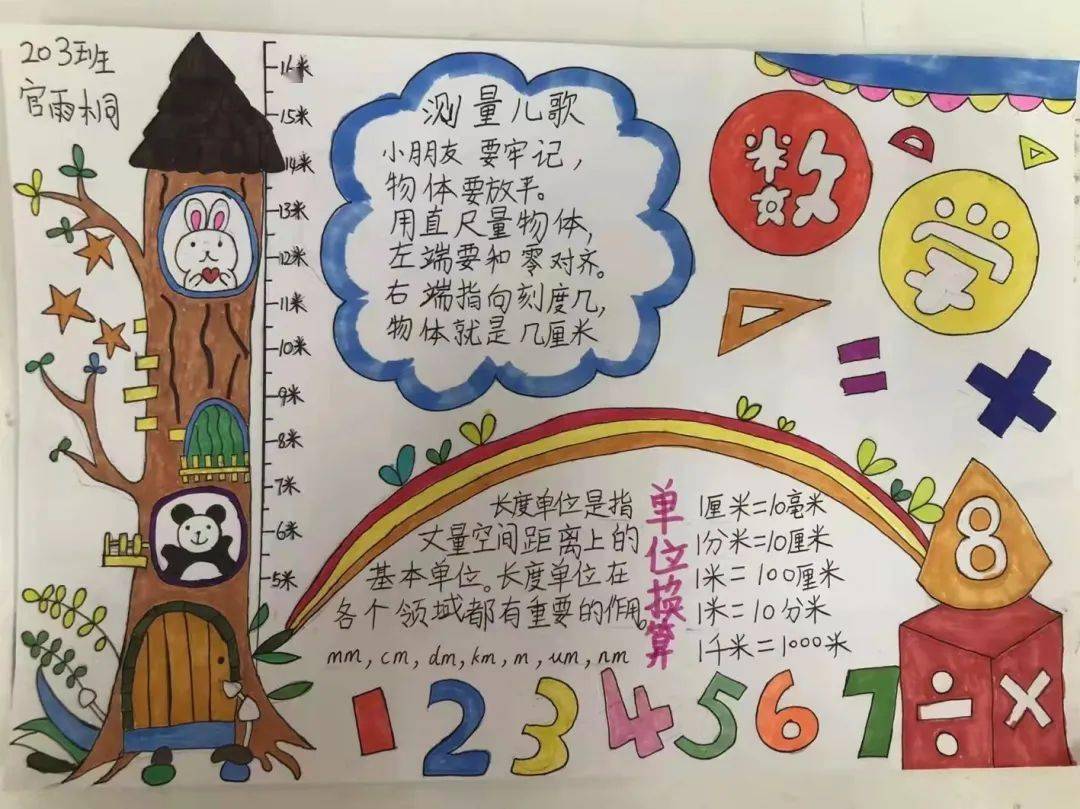 203班
宫雨桐
16米
15米
14米
13米
12米
11米
10米
9米
8米
7米
6米
5米
测量儿歌
小朋友 要牢记，
物体要放平。
用直尺量物体，
左端要和零对齐。
右端指向刻度几，
物体就是几厘米
数
学
=
×
长度单位是指
丈量空间距离上的
基本单位。长度单位在
各个领域都有重要的作用。
mm, cm, dm, km, m, um, nm
单位换算
1厘米=10毫米
1分米=10厘米
1米=100厘米
1米=10分米
1千米=1000米
1 2 3 4 5 6 7
8
÷ ×